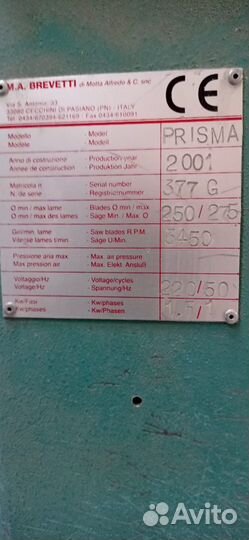 M.A. BREVETTI di Motta Alfredo & C. snc
Via S. Antonio, 33
33080 CECCHINI DI PASIANO (PN) - ITALY
Tel. 0434/670284-621169 - Fax 0434/610091
CE
Modello - Model PRISMA
Modele - Modell
Anno di costruzione - Production year 2001
Annee de construction - Produktion Jahr
Matricola n. - Serial number 377 G
N. de serie - Registriernummer
Ø min / max lame - Blades Ø min / max 250/275
Ø min / max des lames - Sage Min./ Max. Ø
Giri/min. lame - Saw blades R.P.M. 3450
Vitesse lames t/min. - Sage U/Min.
Pressione aria max. - Max. air pressure
Max pression air - Max. Elekt. Anslufi
Voltaggio/Hz - Voltage/cycles 220/50
Voltage/Hz - Spannung/Hz
Kw/Fasi - Kw/phases 1.5/1
Kw/phases - Kw/Phasen
Avito